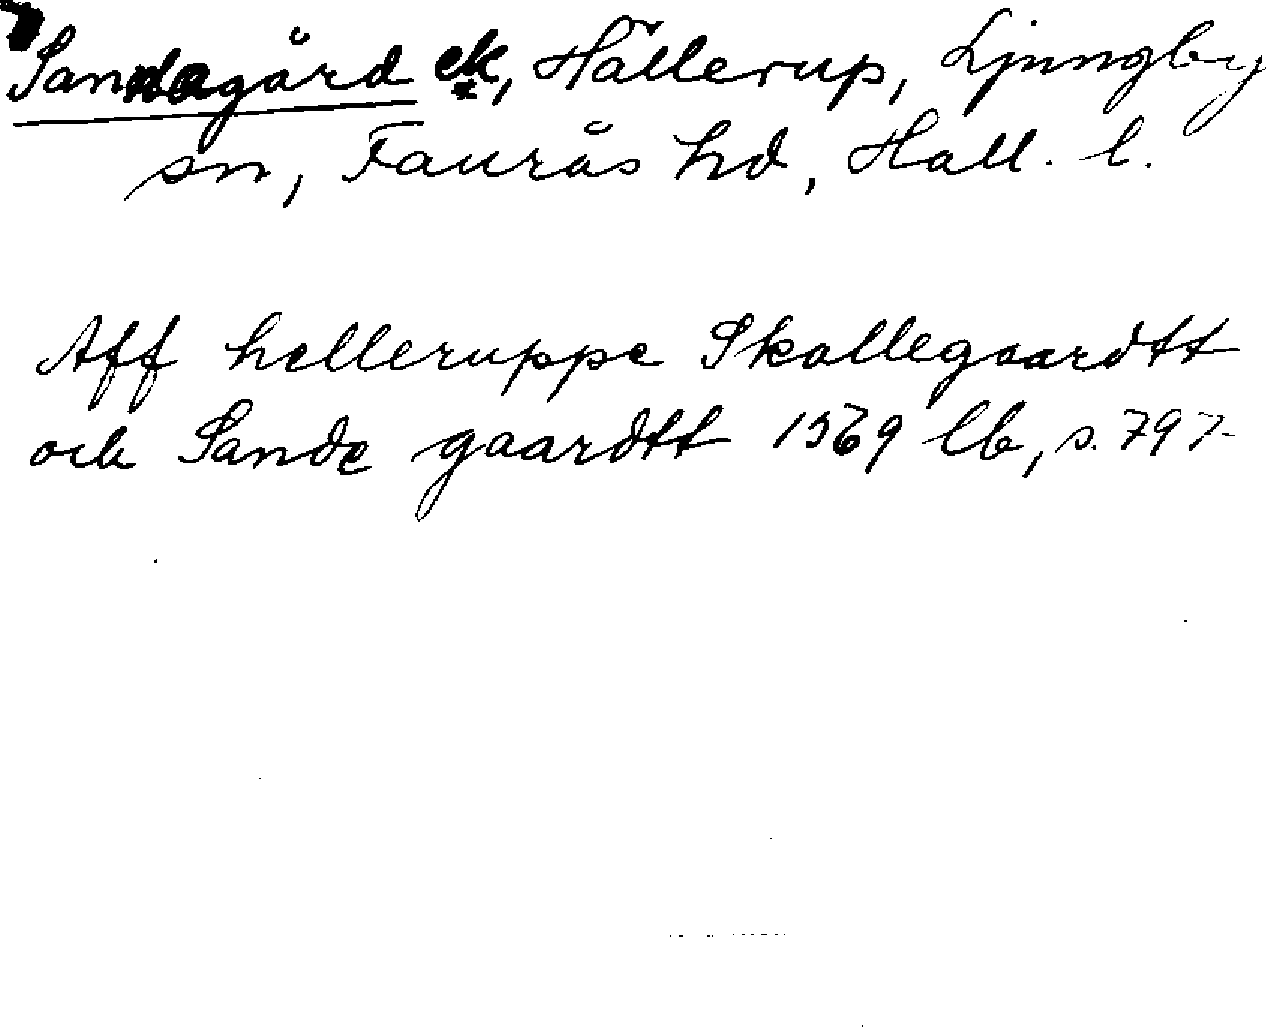 Sandagård ek, Hällerup, Ljungby
sn, Faurås hd, Hall. l.
Aff helleruppe Skallegaardtt
och Sande gaardtt 1569 lb, s. 797